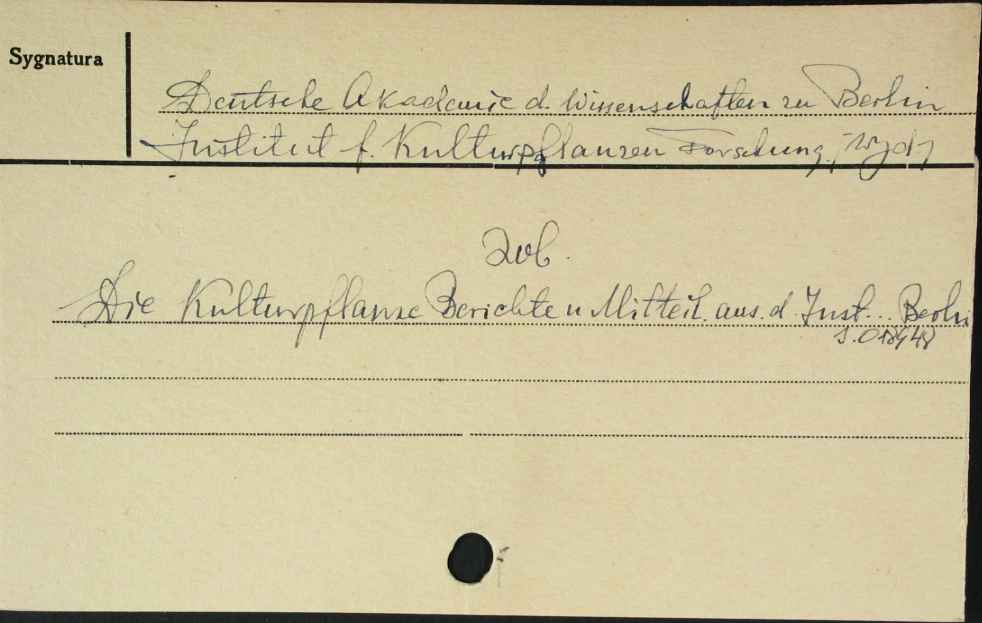 Sygnatura
Deutsche Akademie d. Wissenschaften zu Berlin
Institut f. Kulturpflanzen Forschung, wyd.
zob.
Die Kulturpflanze Berichte u Mitteil. aus. d. Inst... Berlin